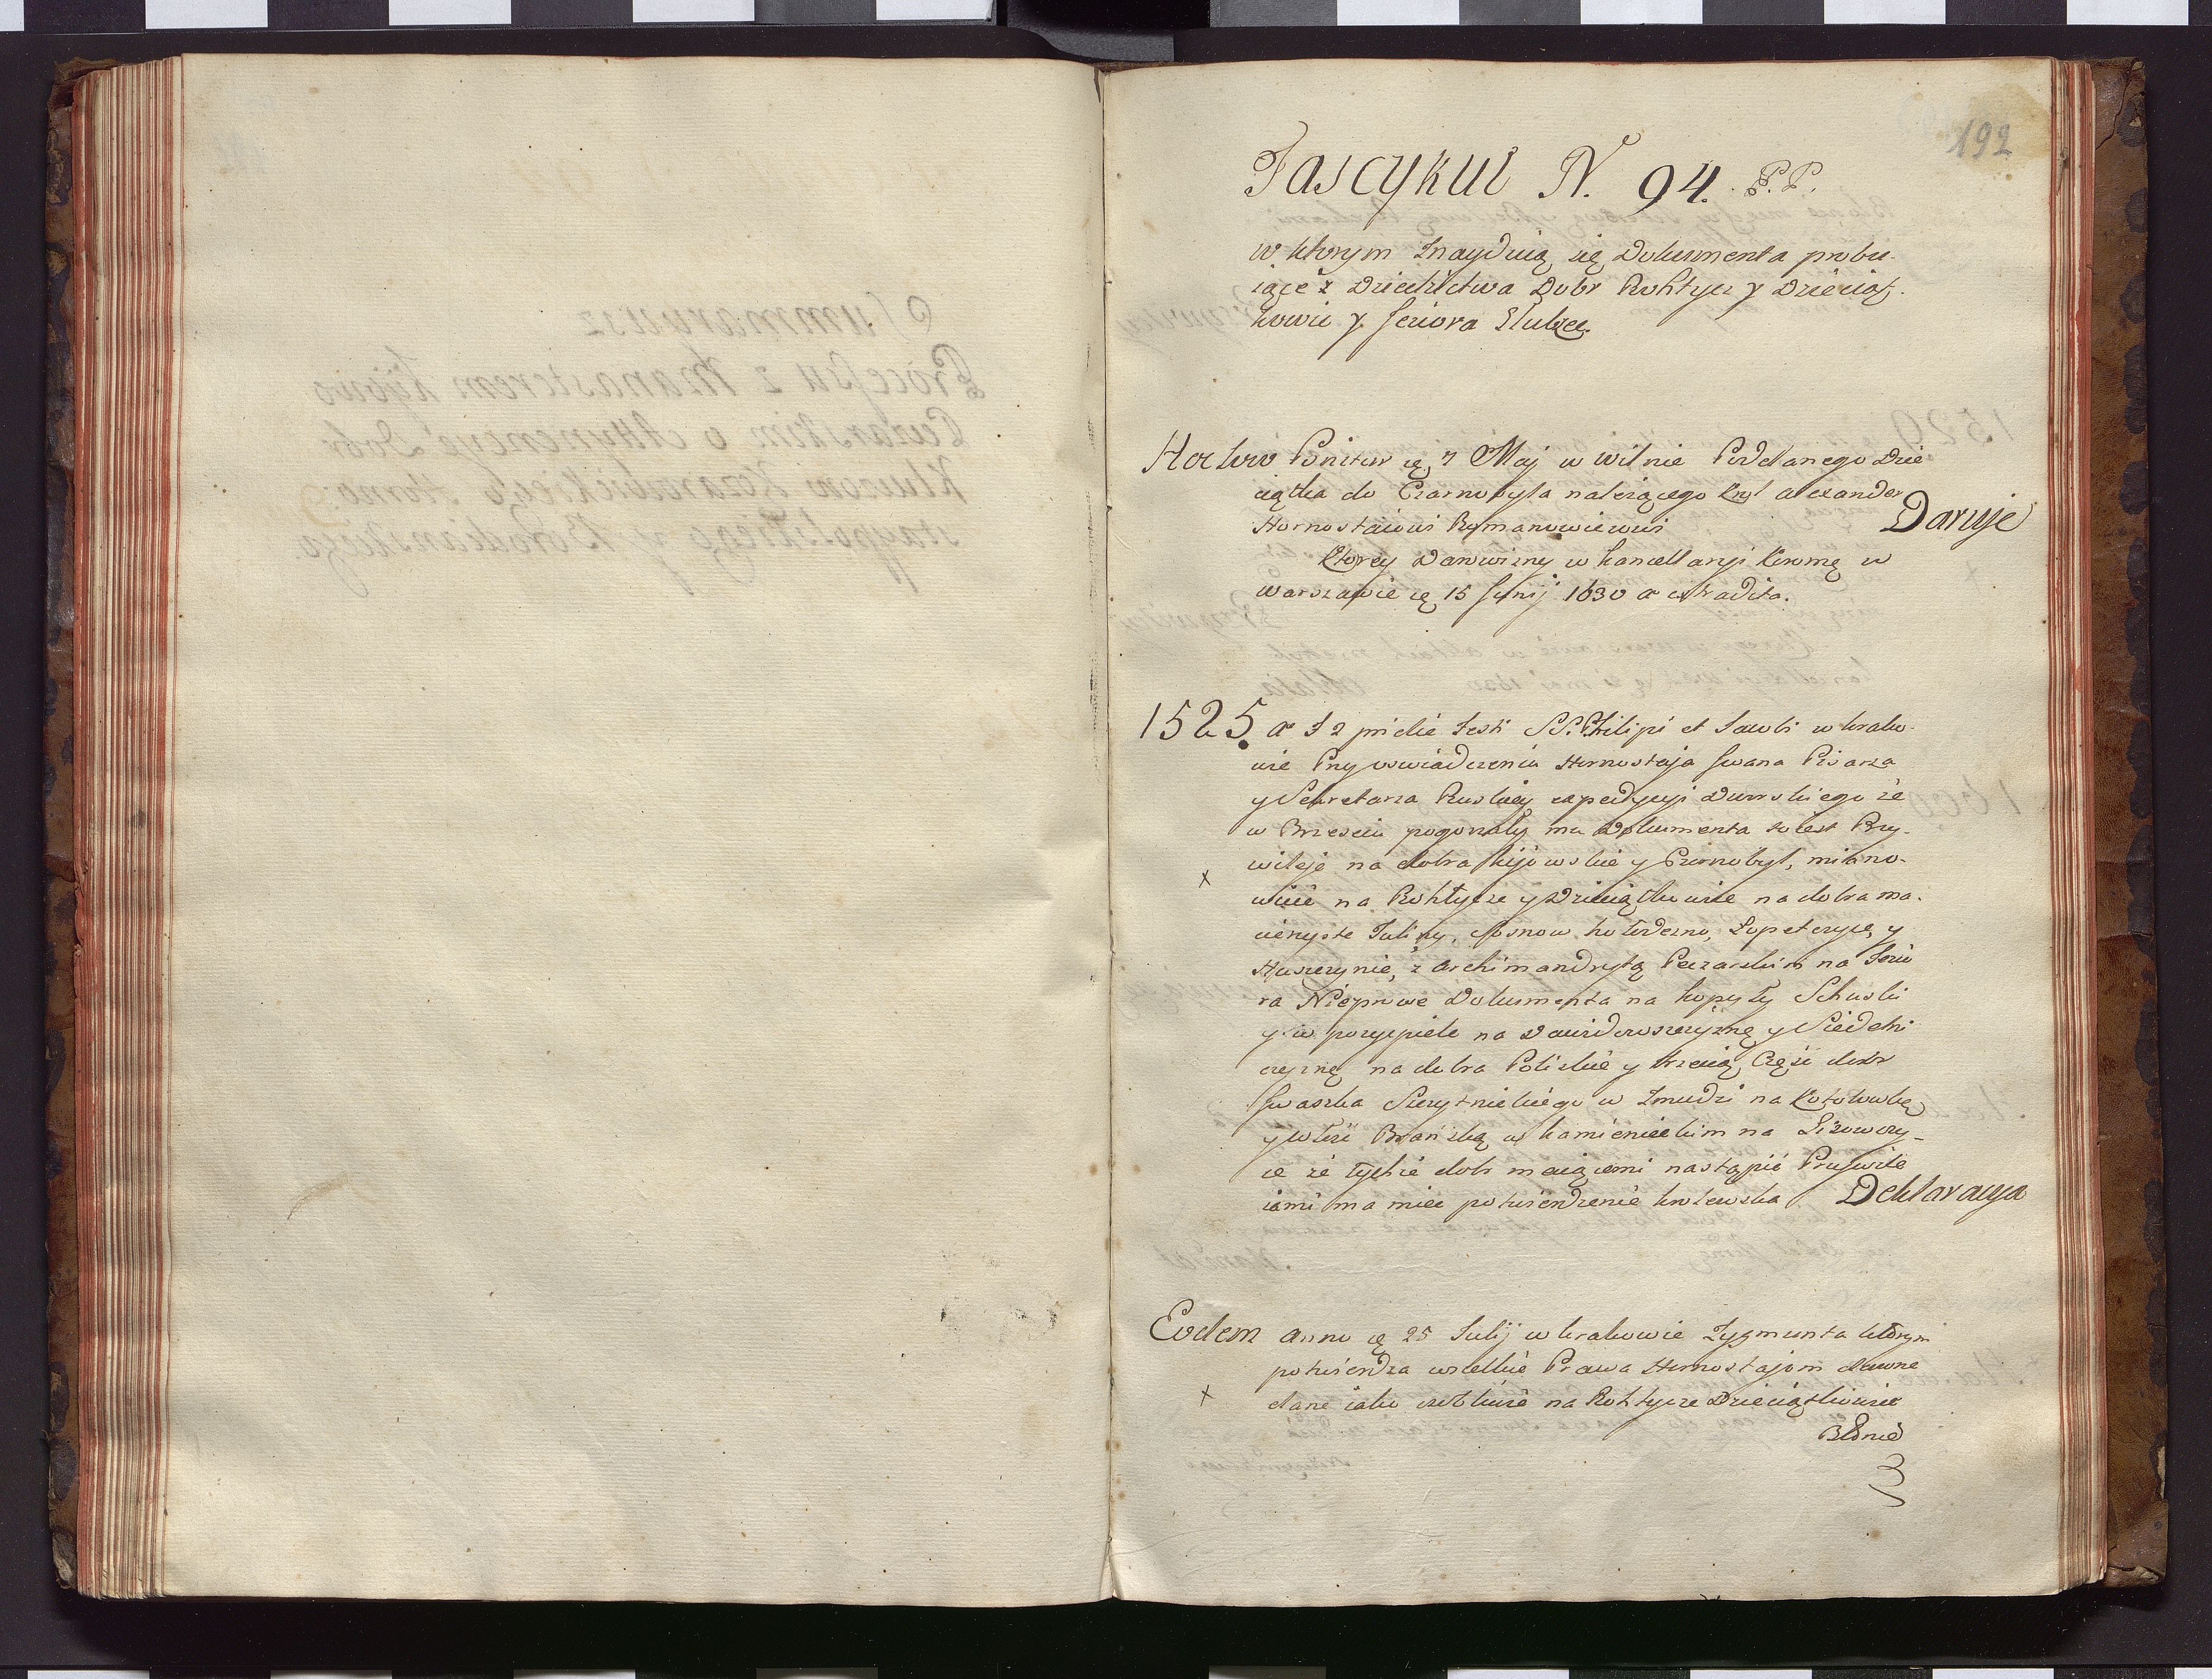 192
Fascykuł N. 94. P.P.
w ktorym Znayduią się Dokumenta probu-
iące z Dziedzictwa Dobr Rohtycz y Dzieciąt-
kowic y Jeziora
Roku Poniew ię 7 Maj w Wilnie Poddanego Dzie
ciątka do Czarnobyla należącego Krol Alexander
Hornostaiowi Romanowiczowi Daruje
Ktorey Darowizny w Kancellaryi Koronną w
Warszawie ię 15 Junij 1630 a extradita.
1525. a I 2 pridie Festi SS. Philipi et Jacobi w Krako-
wie Przy oswiadczeniu Hornostaja Iwana Pisarza
y Sekretarza Ruskiey expedycyi Dworskiego że
w Brzesciu pogorzały mu Dokumenta to iest Przy-
wileje na dobra Kijowskie y Czernobyl, miano-
x
wicie na Rohtycze y Dzieciątkowicze na dobra ma-
cierzyste Juliny, Sosnow, hołodezno, Łopetczyce, y
Huszczynie, z Archimandrytą Peczarskim na Jezio
ra Nieprowe Dokumenta na Kopyły Schuski
y w porzepiele na Dawidowszczyznę y Siedelni
czyznę na dobra Poliskie y trzecią Część dobr
Iwaszka Sczytnickiego w Zmudzi na Kotołowkę
y Wolie Brańską w Kamienieckim na Lizowczy-
ce że tychże dobr maiącemi nastąpić Przywile
iami ma miec potwierdzenie krolewska Deklaracya
Eodem anno ię 25 Julij w Krakowie Zygmunta ktorym
potwierdza wszelkie Prawa Hornostajom dawne
x
dane iako osobliwie na Rohtycze Dzieciątkowicze
Błonie